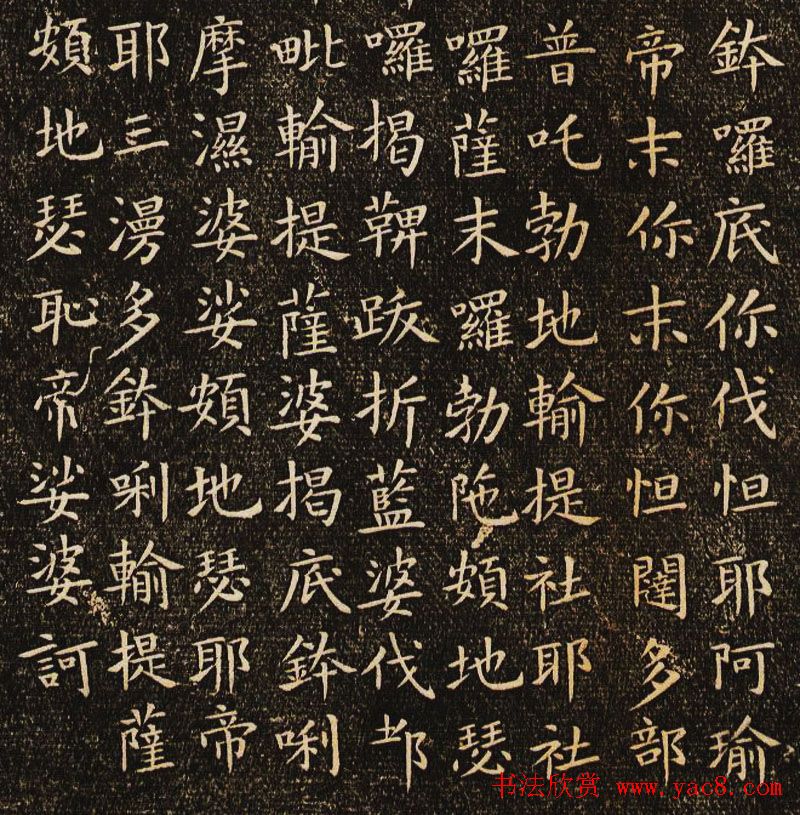 鉢囉底你伐怛耶阿瑜
帝末你末你怛闥多部
普吒勃地輸提社耶社
囉薩末囉勃陁頞地瑟
囉揭鞞跋折藍婆伐都
毗輸提薩婆揭底鉢唎
摩濕婆娑頞地瑟耶帝
耶三漫多鉢唎輸提薩
頞地瑟恥帝娑婆訶
书法欣赏 www.yac8.com